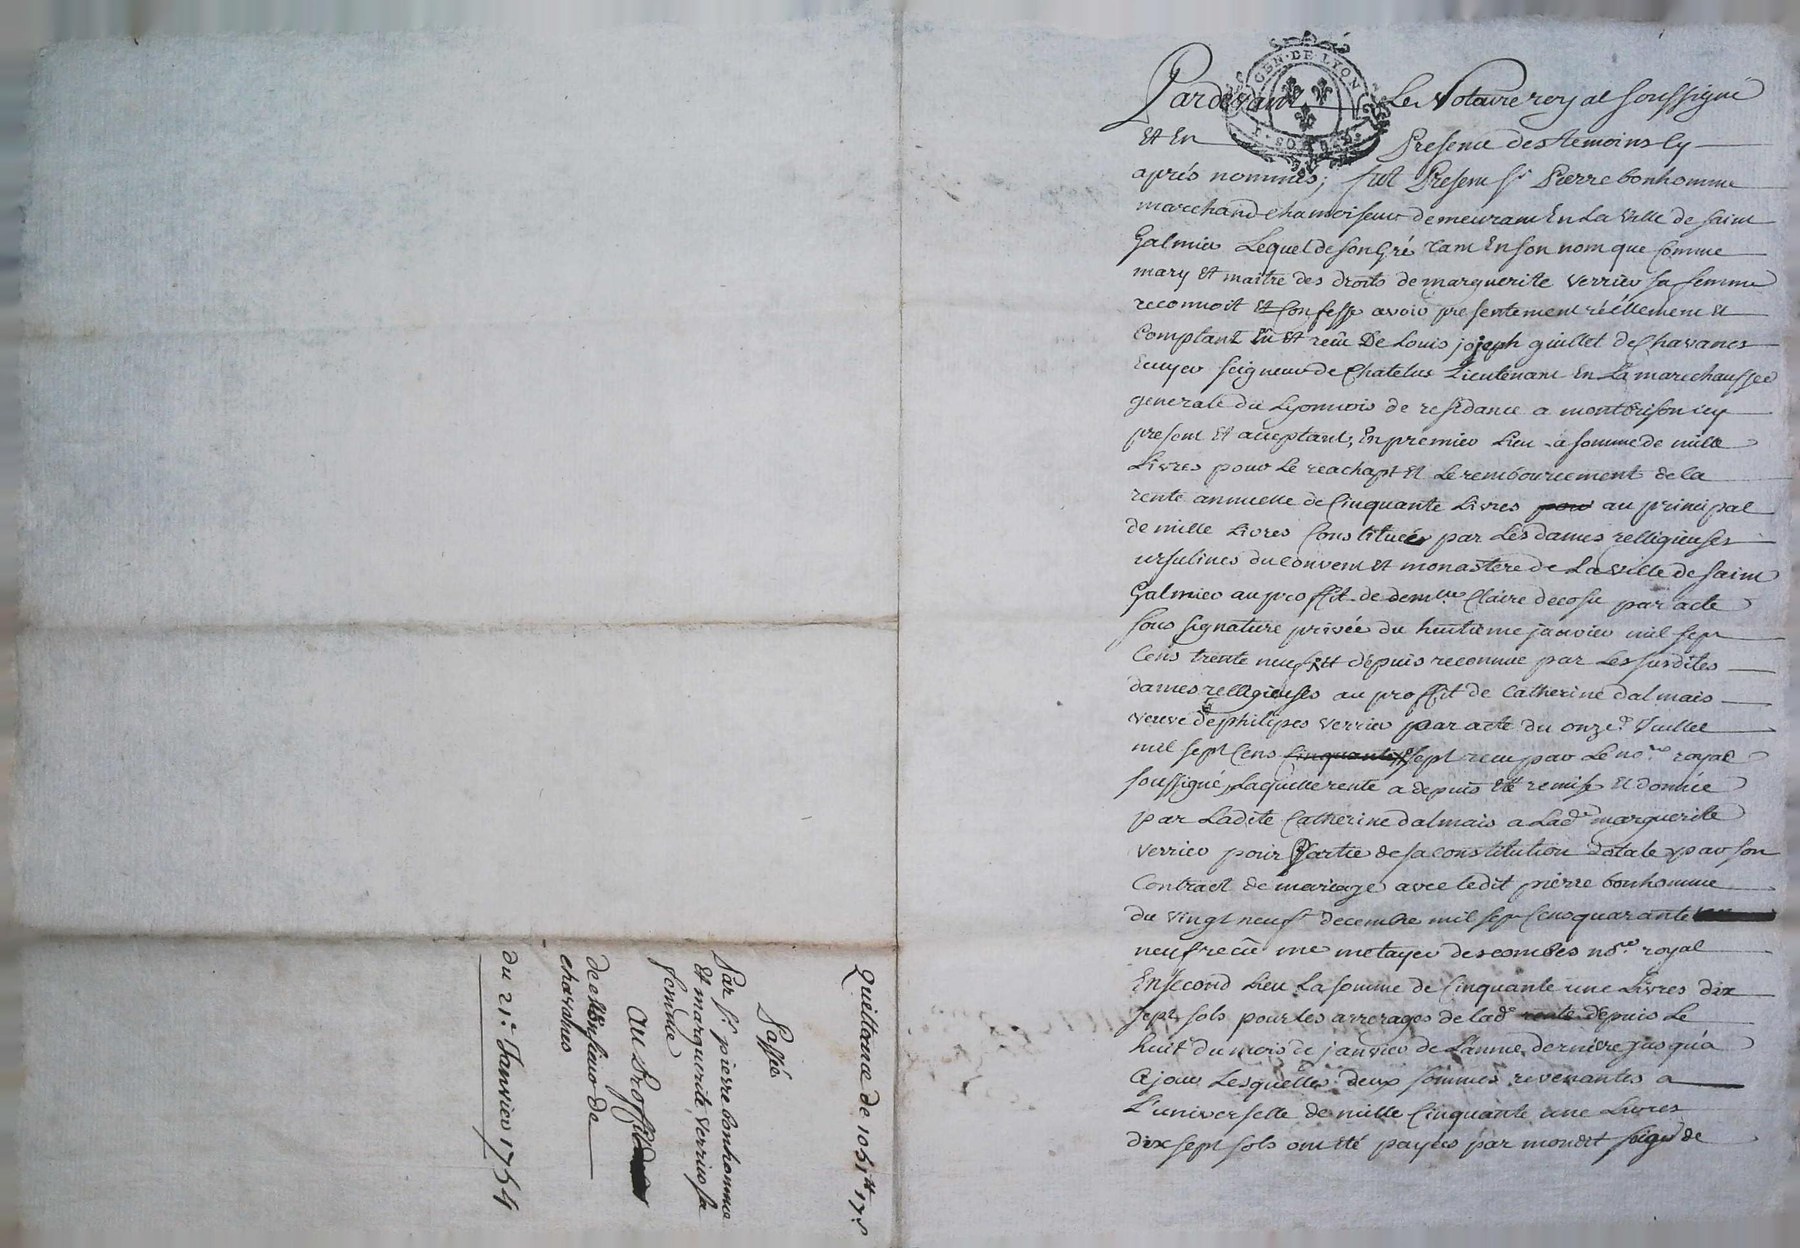 GEN·DE LYON
Pardevant Le Notaire royal soussigné
Et En Presence des temoins Cy
aprés nommés; fut Present Sr Pierre bonhomme
marchand chamoiseur demeurant En La Ville de saint
Galmier Lequel de son Gré tant En son nom que Comme
mary Et maitre des droits de marguerite Verrier sa femme
reconnoit Et Confesse avoir presentement réellement Et
Comptant Eü Et reçu De Louis joseph guillet de Chavanes
Ecuyer seigneur de Chatelus Lieutenant En La marechaussée
generale du Lyonnois de residance a montbrison icy
present Et acceptant, En premier Lieu La somme de mille
Livres pour Le reachapt Et Le remboursement de la
rente annuelle de Cinquante Livres pour au principal
de mille Livres Constituée par Les dames relligieuses
ursulines du Couvent Et monastere de La ville de saint
Galmier au proffit de demlle Claire decosu par acte
sous signature privée du huitieme janvier mil sept
Cens trente neuf, Et depuis reconnue par Les susdites
dames relligieuses au proffit de Catherine dalmais
veuve de philipes Verrier par acte du onze Juillet
mil sept Cens Cinquante sept reçu par Le nre royal
soussigné, Laquelle rente a depuis Eté remise Et donnée
par Ladite Catherine dalmais a Lade marguerite
Verrier pour Partie de sa constitution dotale par son
Contract de mariage avec ledit pierre bonhomme
du vingt neuf decembre mil sept Cens quarante
neuf reçü me metayer descombes nre royal
En second Lieu La somme de Cinquante une Livres dix
sept sols pour Les arrerages de lade rente depuis Le
huit du mois de janvier de L'année derniere jusqu'a
Ce jour Lesquelles deux sommes revenantes a
L'universelle de mille Cinquante une Livres
dix sept sols ont Eté payées par mondit seigr de
Quittance de 1051tt 17s
Passée
Par Sr pierre bonhomme
Et marguerite Verrier sa
femme
au Proffit
de Monsieur de
chavanes
du 21e Janvier 1754